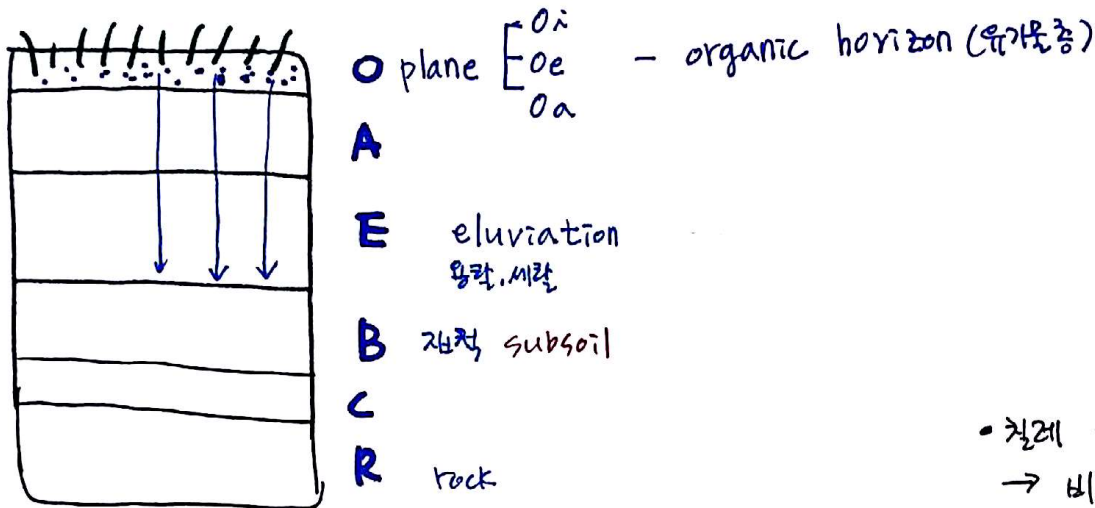 O plane Oi
Oe - organic horizon (유기물층)
Oa
A
E eluviation
용탈, 세탈
B 집적 subsoil
C
R rock
• 칠레
→ 비